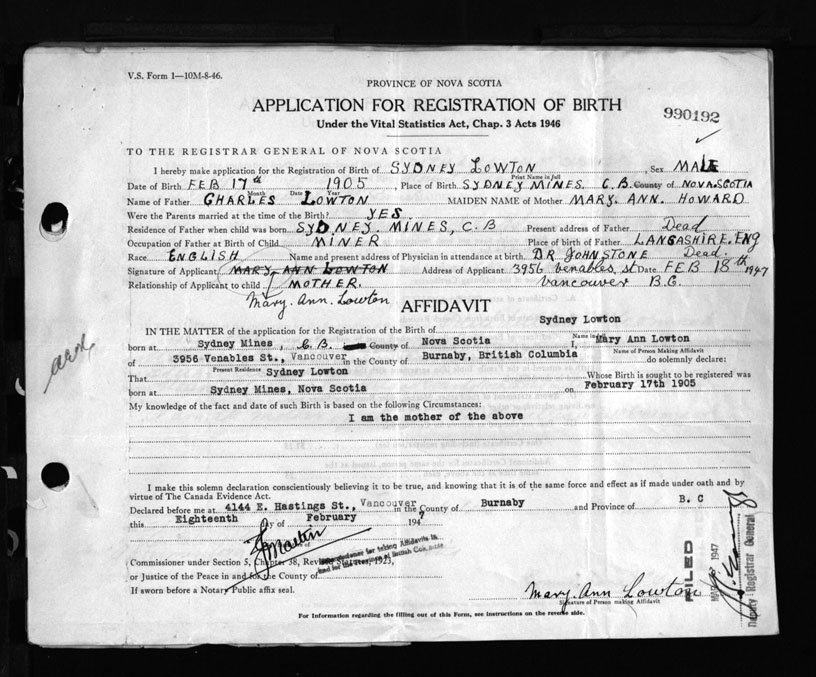 V.S. Form 1—10M-8-46.
PROVINCE OF NOVA SCOTIA
APPLICATION FOR REGISTRATION OF BIRTH
990192
Under the Vital Statistics Act, Chap. 3 Acts 1946
TO THE REGISTRAR GENERAL OF NOVA SCOTIA
I hereby make application for the Registration of Birth of SYDNEY LOWTON , Sex MALE
Print Name in full
Date of Birth FEB 17th 1905 , Place of Birth SYDNEY MINES. C.B. County of NOVA.SCOTIA
Month Date Year
Name of Father CHARLES LOWTON MAIDEN NAME of Mother MARY. ANN. HOWARD
Were the Parents married at the time of the Birth? YES.
Residence of Father when child was born SYDNEY. MINES, C.B Present address of Father Dead
Occupation of Father at Birth of Child MINER Place of birth of Father LANCASHIRE. ENG
Race ENGLISH Name and present address of Physician in attendance at birth DR JOHNSTONE Dead.
Signature of Applicant MARY ANN LOWTON Address of Applicant 3956 venables, st Date FEB 18th 1947
Relationship of Applicant to child MOTHER. Vancouver B.C.
Mary. Ann. Lowton
AFFIDAVIT
Sydney Lowton
IN THE MATTER of the application for the Registration of Birth of
born at Sydney Mines, C.B. County of Nova Scotia I, Mary Ann Lowton
Name in full
of 3956 Venables St., Vancouver in the County of Burnaby, British Columbia do solemnly declare:
Present Residence Name of Person Making Affidavit
That Sydney Lowton Whose Birth is sought to be registered was
born at Sydney Mines, Nova Scotia on February 17th 1905
My knowledge of the fact and date of such Birth is based on the following Circumstances:
I am the mother of the above
I make this solemn declaration conscientiously believing it to be true, and knowing that it is of the same force and effect as if made under oath and by
virtue of The Canada Evidence Act.
Declared before me at 4144 E. Hastings St., Vancouver in the County of Burnaby and Province of B. C
this Eighteenth day of February 1947
Martin
Commissioner under Section 5, Chapter 38, Revised Statutes, 1923,
or Justice of the Peace in and for the County of
If sworn before a Notary Public affix seal.
for taking Affidavits in
and for the Province of British Columbia
Mary. Ann Lowton
Signature of Person making Affidavit
FILED
1947
Deputy Registrar General
For Information regarding the filling out of this Form, see Instructions on the reverse side.